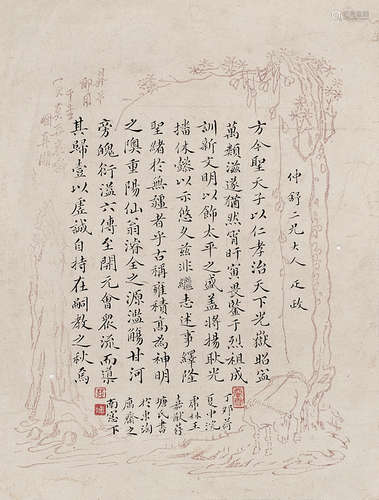 仲舒二兄大人正政
方今聖天子以仁孝治天下光嶽昭宣
萬類滋遂猶然宵旰寅畏鑒于烈祖成
訓新文明以飾太平之盛蓋將揚耿光
播休懿以示悠久茲非繼志述事繹隆
聖緒於無疆者乎古稱雍積高為神明
之隩重陽仙翁濬全之源濫觴甘河
旁魄衍溢六傳至開元會衆流而導
其歸壹以虛誠自持在嗣教之秋為
夏小浣
林王
嘉猷
塘氏書
於東
齋之
南窓下